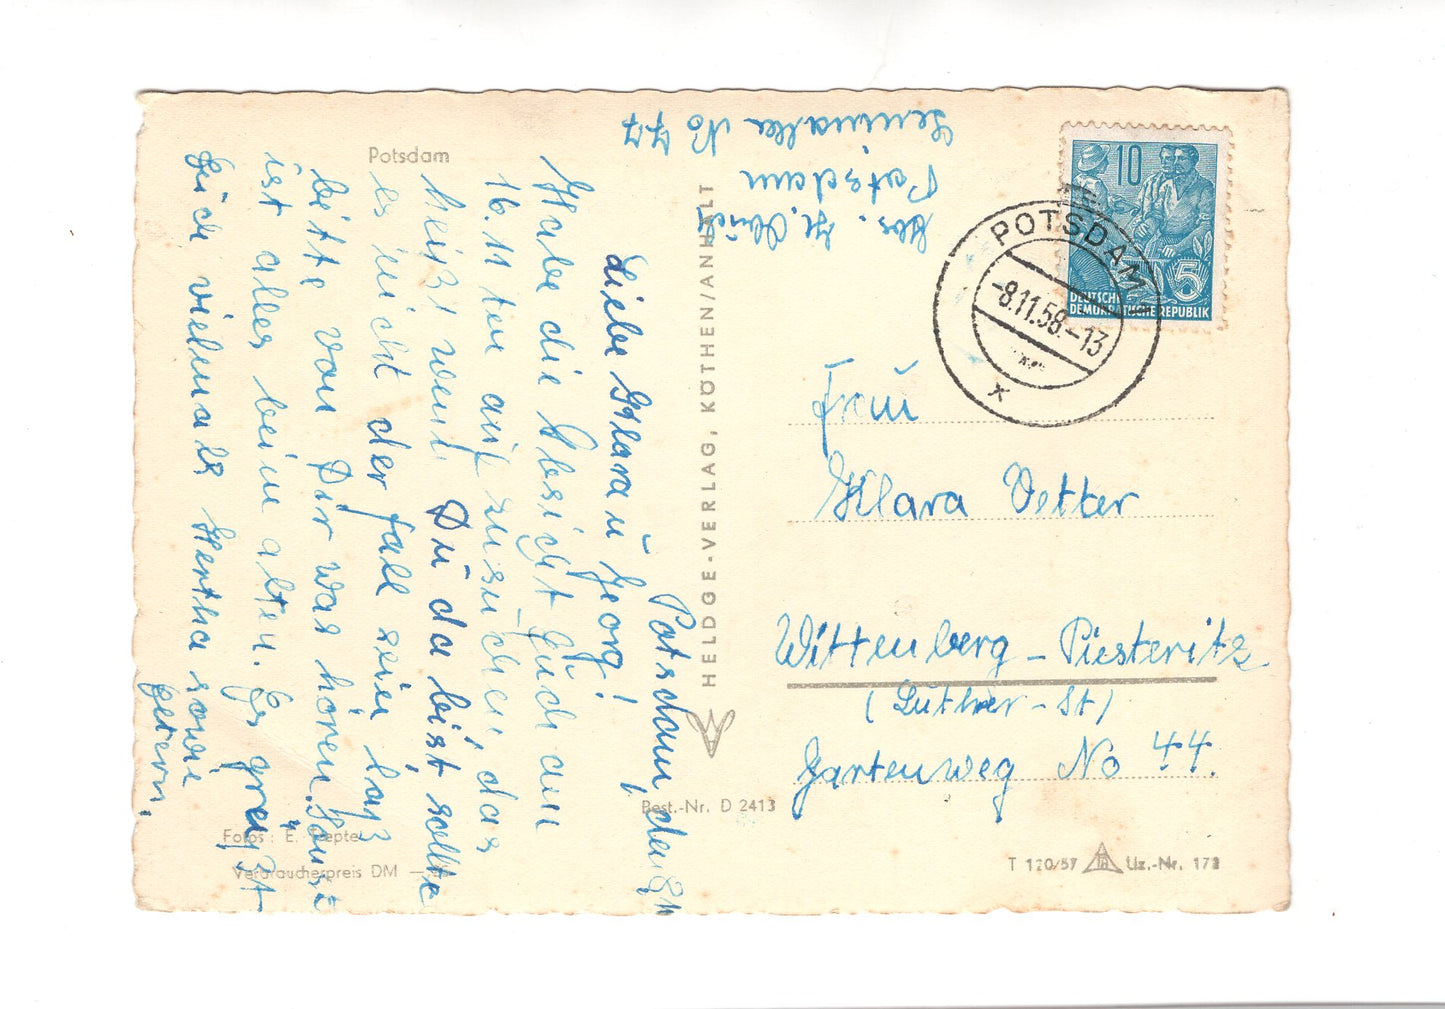 Potsdam
Potsdam den 8/11
Liebe Klara u Georg!
Habe die Absicht Euch am
16.11 ten auf zusuchen, das
heißt wenn Du da bist sollte
es nicht der Fall sein laß
bitte von Dir was hören. Sonst
ist alles beim alten. Es grüßt
Dich vielmals Hertha sowie
Eltern.
Abs. H.
Potsdam
Leninallee No 77
HELDGE-VERLAG, KÖTHEN/ANHALT
Best.-Nr. D 2413
Fotos: E.
Verbraucherpreis DM —
10
5
DEUTSCHE
DEMOKRATISCHE REPUBLIK
POTSDAM
-8.11.58.-13
Frau
Klara Vetter
Wittenberg - Piesteritz
(Luther - St)
Gartenweg No 44.
T 120/57 Liz.-Nr. 173